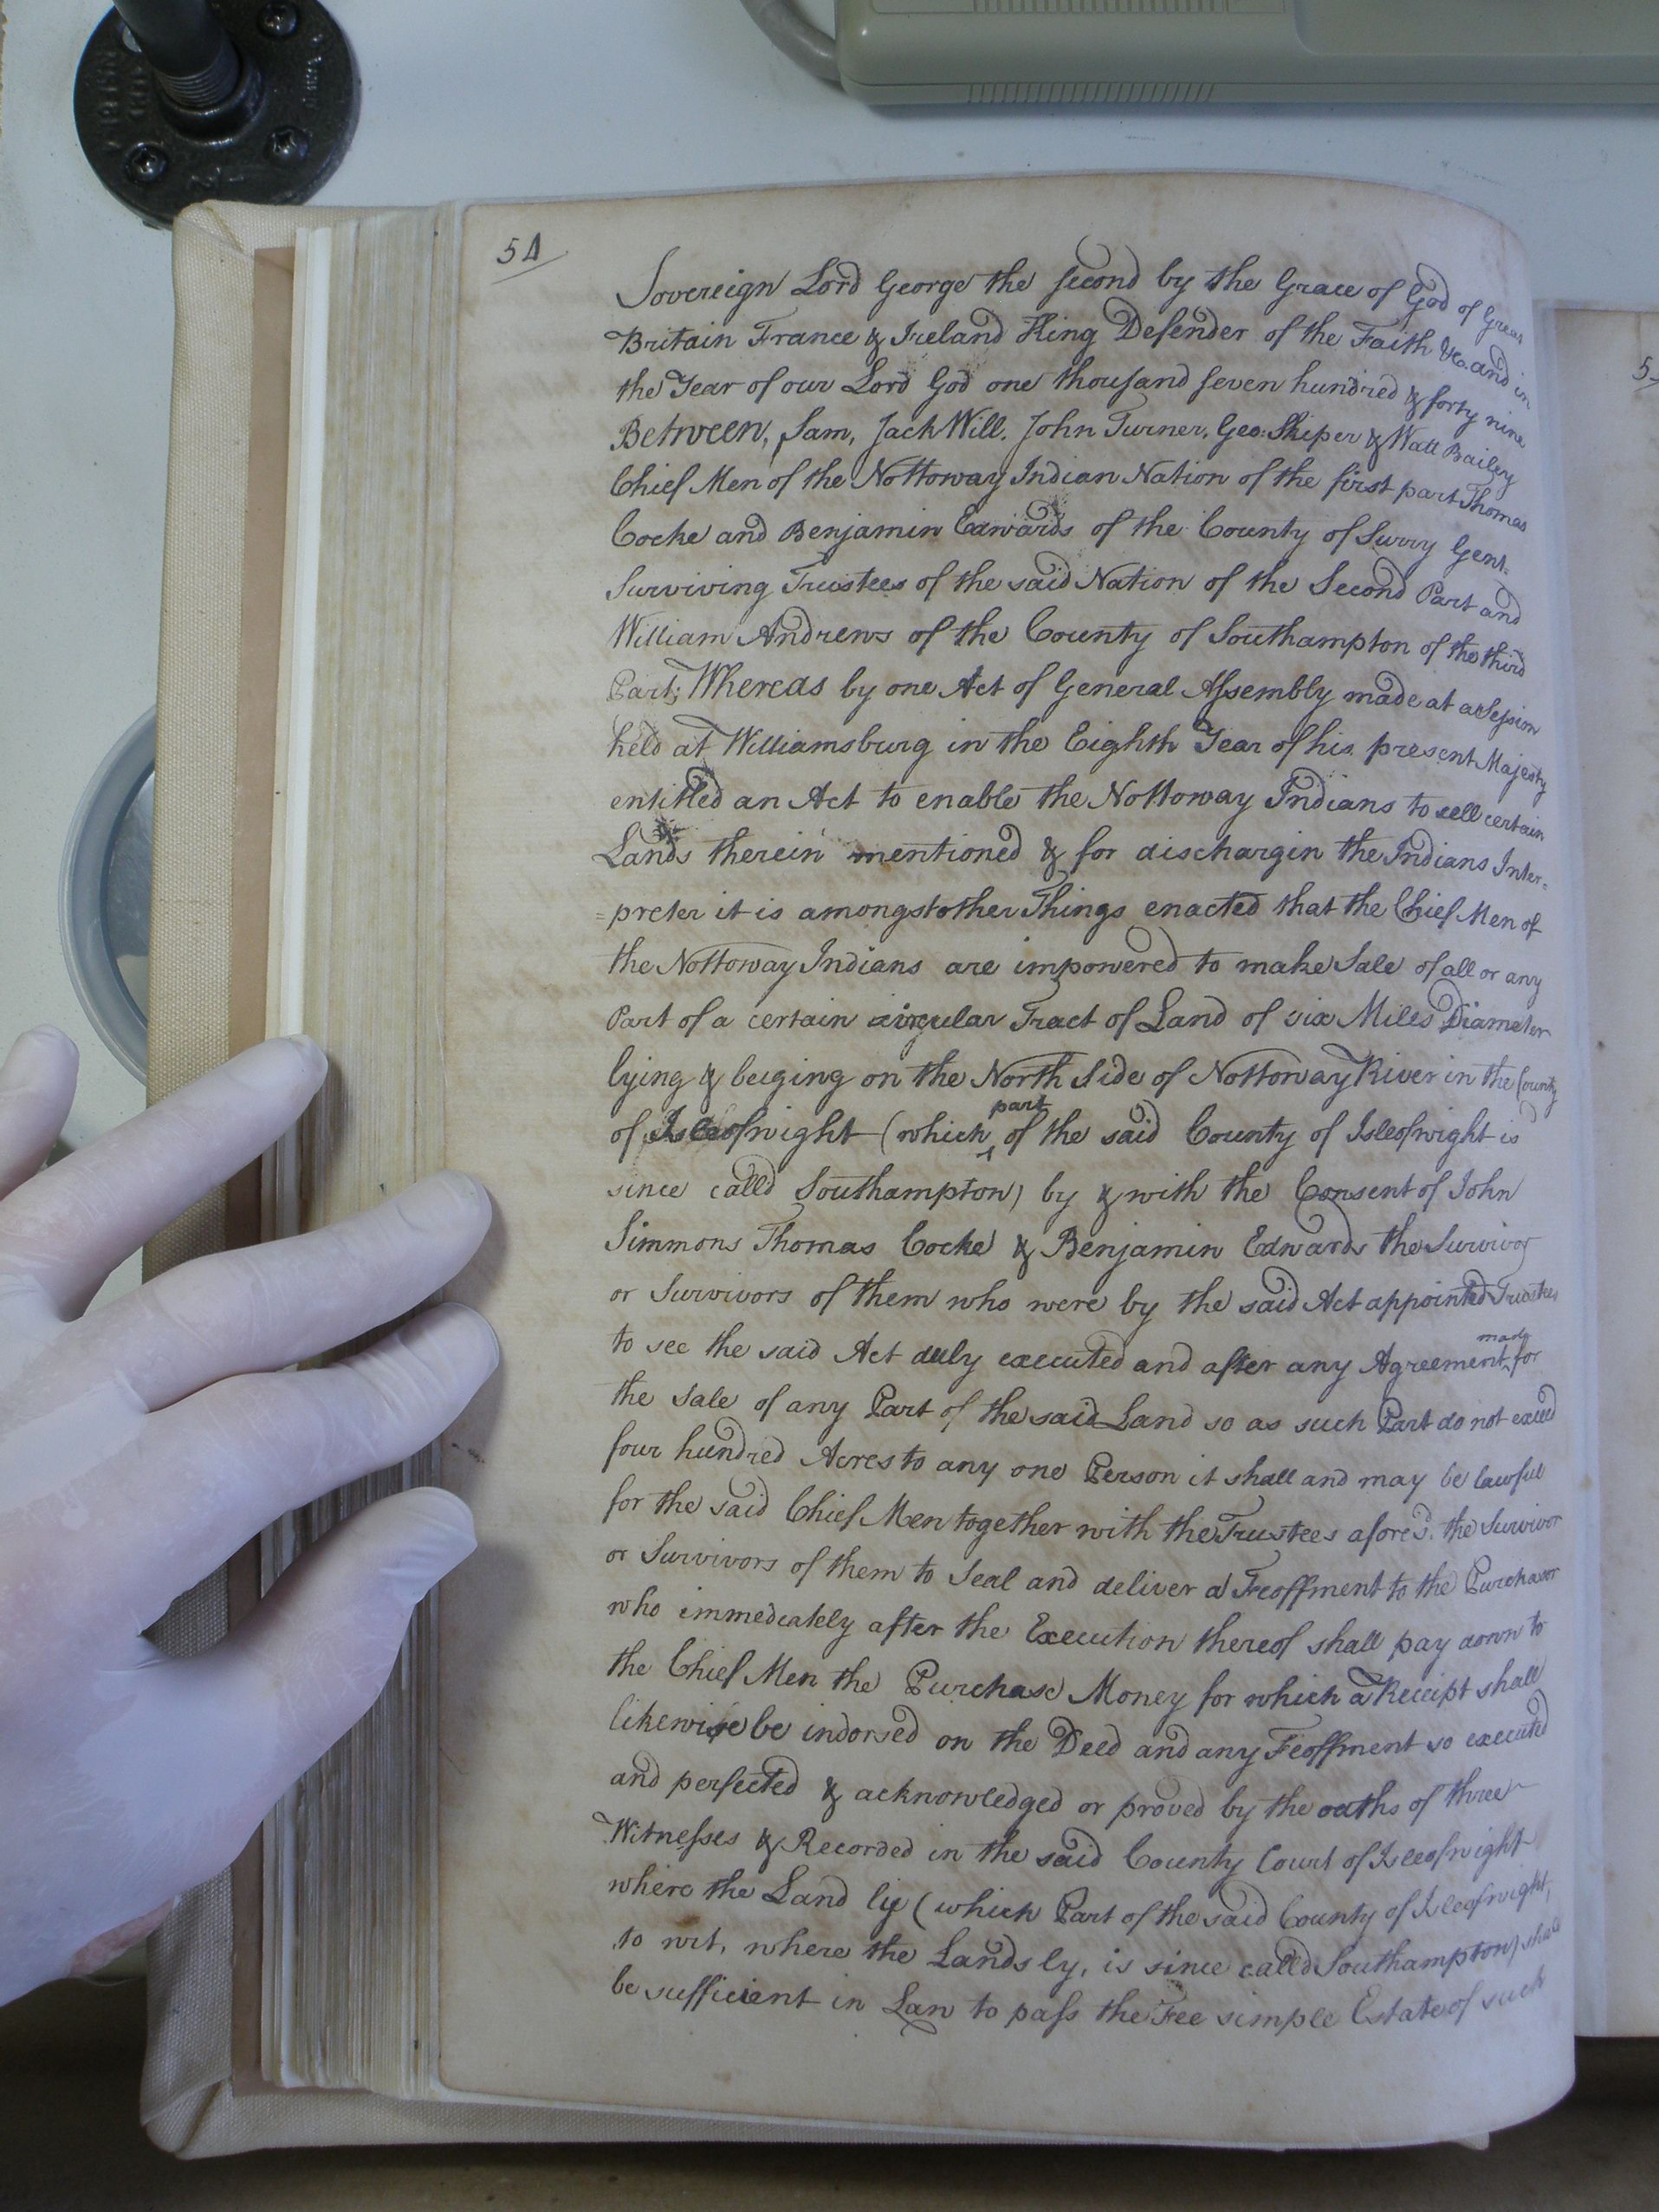 54
Sovereign Lord George the second by the Grace of God of Great
Britain France & Ireland King Defender of the Faith &c. and in
the Year of our Lord God one thousand seven hundred & forty nine
Between, Sam, Jack Will, John Turner, Geo: Skiper & Watt Bailey
Chief Men of the Nottoway Indian Nation of the first part Thomas
Cocke and Benjamin Edwards of the County of Surry Gent.
Surviving Trustees of the said Nation of the Second Part and
William Andrews of the County of Southampton of the third
Part; Whereas by one Act of General Assembly made at a Session
held at Williamsburg in the Eighth Year of his present Majesty
entitled an Act to enable the Nottoway Indians to sell certain
Lands therein mentioned & for dischargin the Indians Inter=
=preter it is amongst other Things enacted that the Chief Men of
the Nottoway Indians are impowered to make Sale of all or any
Part of a certain circular Tract of Land of six Miles Diameter
lying & beiging on the North Side of Nottoway River in the County
of Isleofwight (which part of the said County of Isleofwight is
since calld Southampton) by & with the Consent of John
Simmons Thomas Cocke & Benjamin Edwards the Survivor
or Survivors of them who were by the said Act appointed Trustees
to see the said Act duly executed and after any Agreement made for
the Sale of any Part of the said Land so as such Part do not exceed
four hundred Acres to any one Person it shall and may be lawful
for the said Chief Men together with the Trustees afores'd. the Survivor
or Survivors of them to Seal and deliver a Freoffment to the Purchasor
who immediately after the Execution thereof shall pay down to
the Chief Men the Purchase Money for which a Receipt shall
likewise be indorsed on the Deed and any Feoffment so executed
and perfected & acknowledged or proved by the oaths of three
Witnesses & Recorded in the said County Court of Isleofwight
where the Land lie (which Part of the said County of Isleofwight,
to wit, where the Lands ly, is since calld Southampton) shall
be sufficient in Law to pass the Fee simple Estate of such